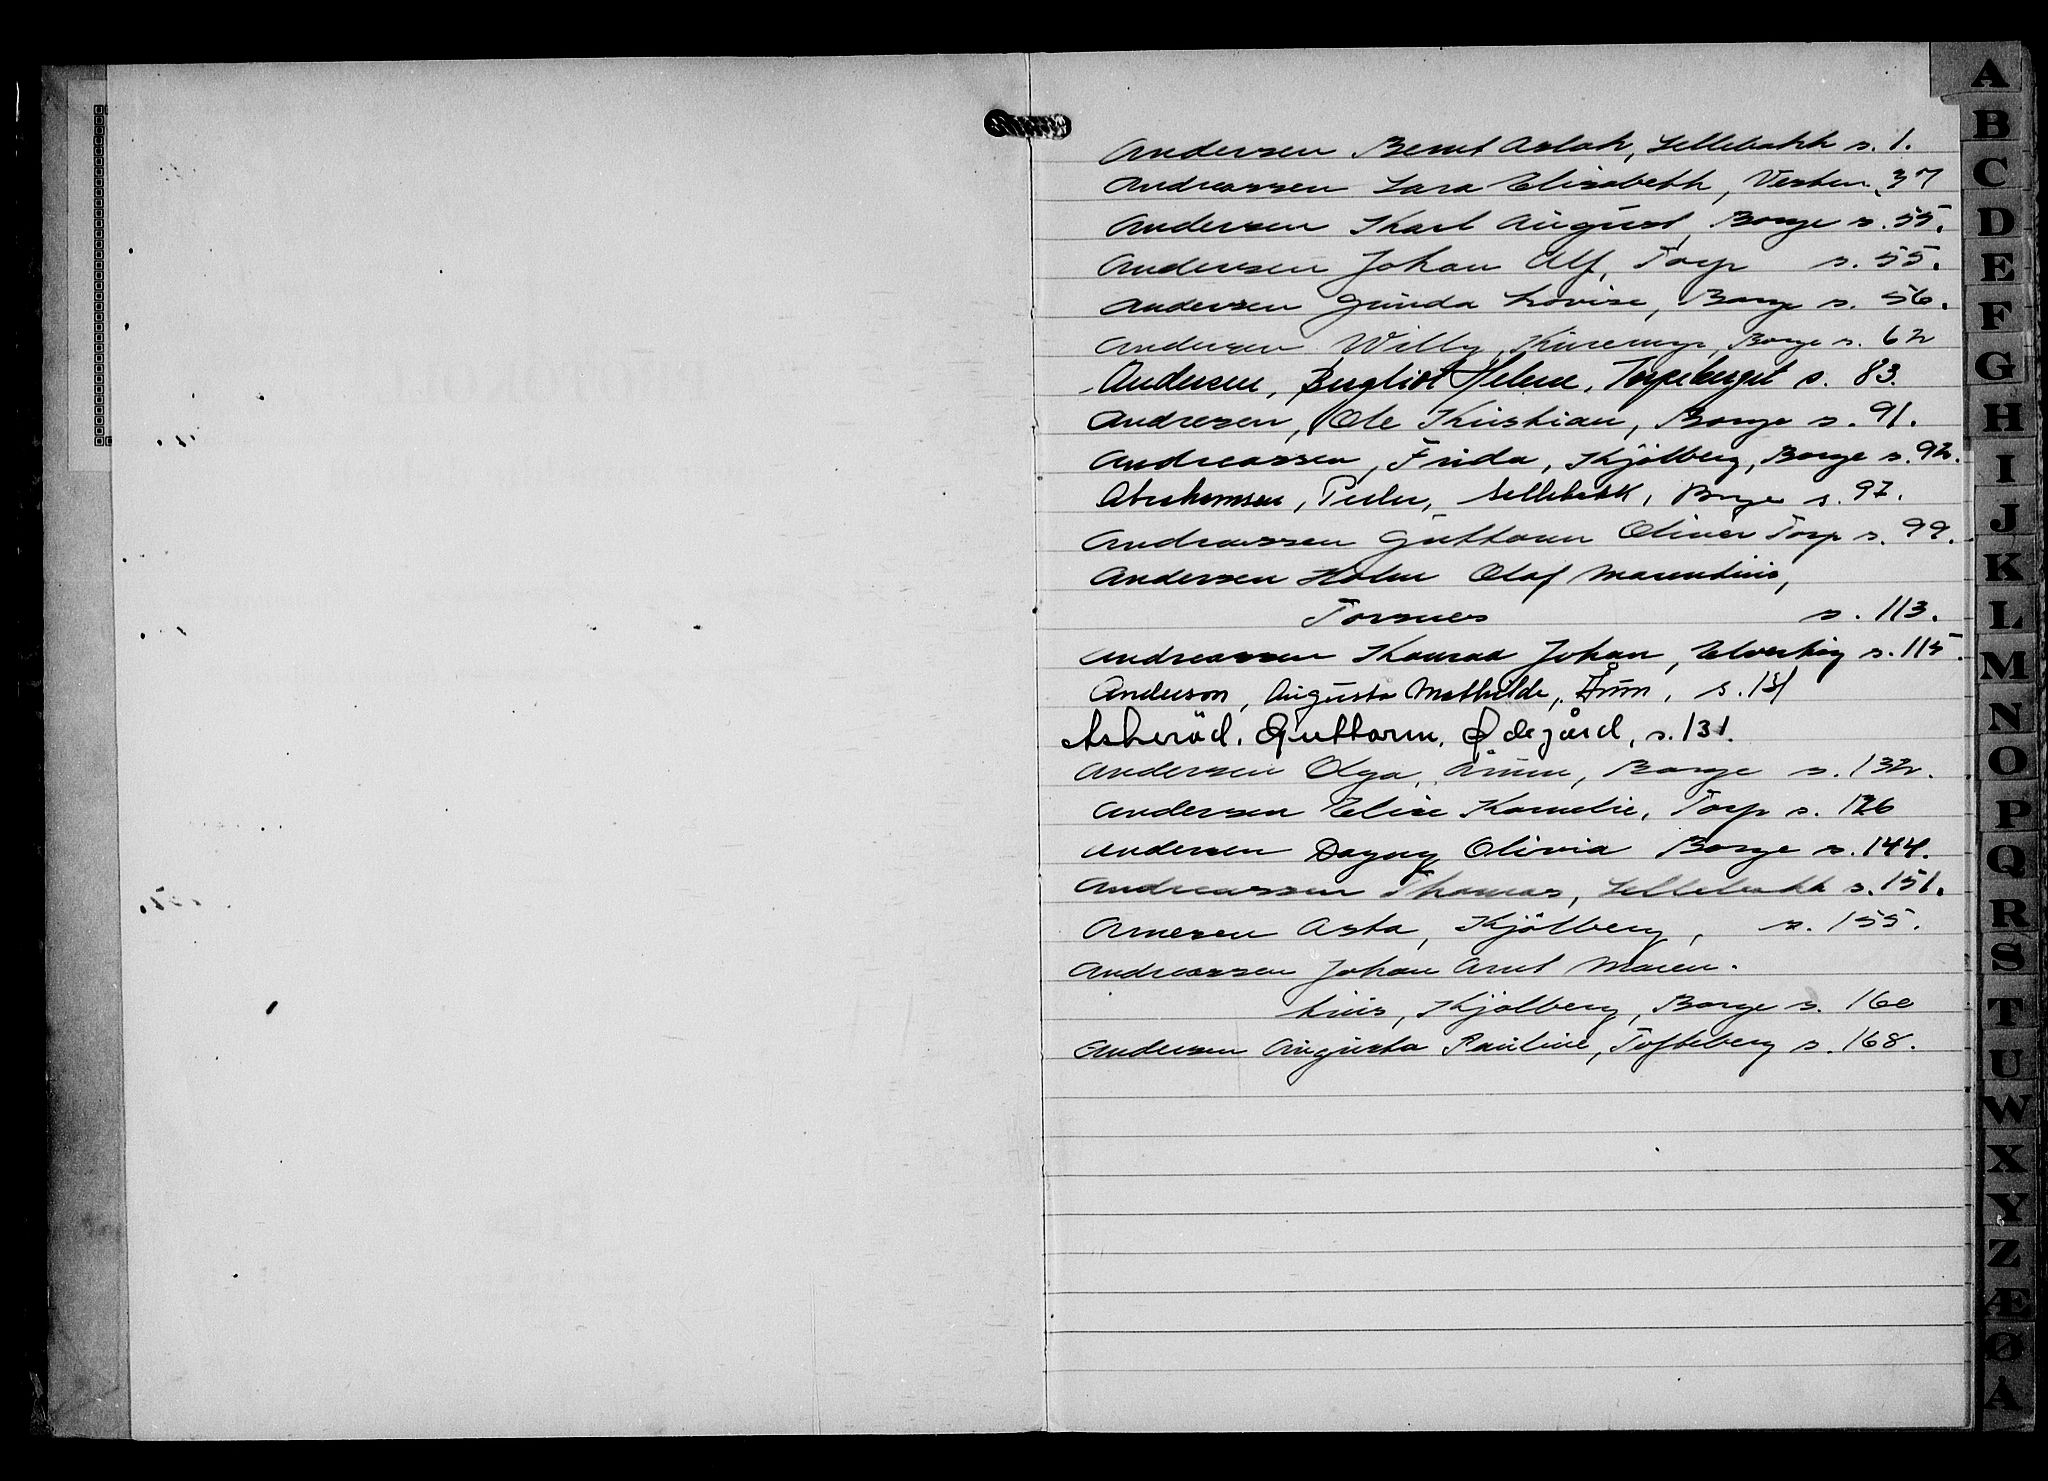 Andersen Bernt Aslak, Sellebakk s. 1.
Andreassen Lara Elisabeth, Vesten, 37
Andersen Karl August, Borge s. 55.
Andersen Johan Alf, Torp s. 55.
Andersen Gunda Lovise, Borge s. 56.
Andersen Willy, Borge s. 62
Andersen, Bergliot Helene, Torpeberget s. 83.
Andresen, Ole Kristian, Borge s. 91.
Andreassen, Frida, Kjölberg, Borge s. 92.
Abrahamsen, Peder, Sellebakk, Borge s. 97.
Andreassen Guttorm Oliver Torp s. 99.
Andersen Holm Olaf Marentius,
Torsnes s. 113.
Andreassen Konrad Johan, Elverhöy s. 115.
Anderson, Augusta Mathilde, Årum, s. 131
Askeröd, Guttorm, Ødegård, s. 131.
Andersen Olga, Årum, Borge s. 132.
Andersen Elise Kornelie, Torp s. 126
Andersen Dagny Olivia Borge s. 144.
Andreassen Thomas, Sellebakk s. 151.
Arnesen Asta, Kjölberg, s. 155.
Andreassen Johan Arnt Maren-
tius, Kjölberg, Borge s. 160
Andersen Augusta Pauline, Tofteberg s. 168.
A
B
C
D
E
F
G
H
I
J
K
L
M
N
O
P
Q
R
S
T
U
W
X
Y
Z
Æ
Ø
Å